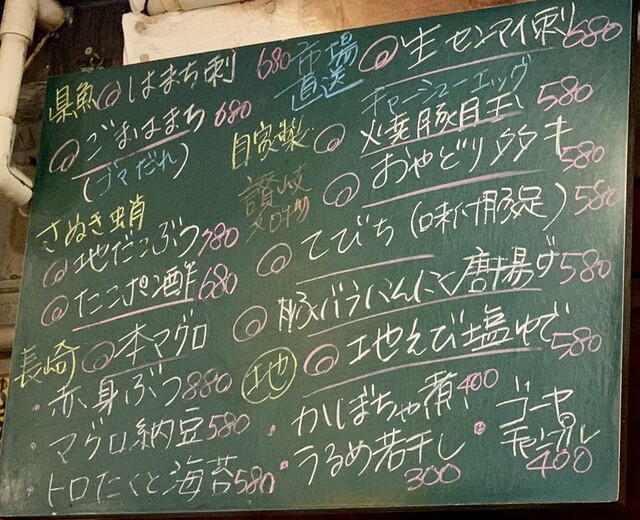 県魚 はまち刺 680
ごまはまち 680
(ゴマだれ)
さぬき蛸
地だこぶつ 780
たこポン酢 680
長崎 本マグロ
・赤身ぶつ 880
・マグロ納豆 580
・トロたくと海苔 580
市場直送 生センマイ刺 680
チャーシューエッグ
自家製 火焼豚目玉 580
讃岐名物 おやどりタタキ 580
てびち(味付豚足) 580
豚バラにんにく唐揚げ 580
地 地えび塩ゆで 580
・かぼちゃ煮 400
・うるめ若干し 300
・ゴーヤチャンプル 400